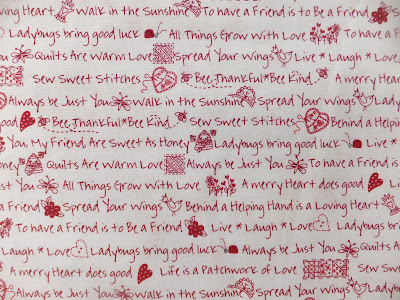 ving Heart Walk in the Sunshine To have a Friend is to Be a Friend S
Ladybugs bring good luck All Things Grow With Love To have a F
You Quilts Are Warm Love Spread Your Wings Live * Laugh * Love
Sew Sweet Stitches Bee Thankful*Bee Kind A merry Hear
Always be Just You Walk in the Sunshine Spread Your Wings Lady
good Bee Thankful*Bee Kind Sew Sweet Stitches Behind a Helping
You My Friend Are Sweet As Honey Ladybugs bring good luck Live *
Honey Quilts Are Warm Love Always be Just You To have a Friend is
st You All Things Grow With Love A merry Heart does good Li
a Friend Spread Your Wings Behind a Helping Hand is a Loving Heart
To have a Friend is to Be a Friend Live * Laugh * Love Ladybugs b
* Laugh * Love Ladybugs bring good luck Always be Just You Quilts A
A merry Heart does good Life is a Patchwork of Love Sew
Always be Just You Walk in the Sunshine Spread Your Wings La